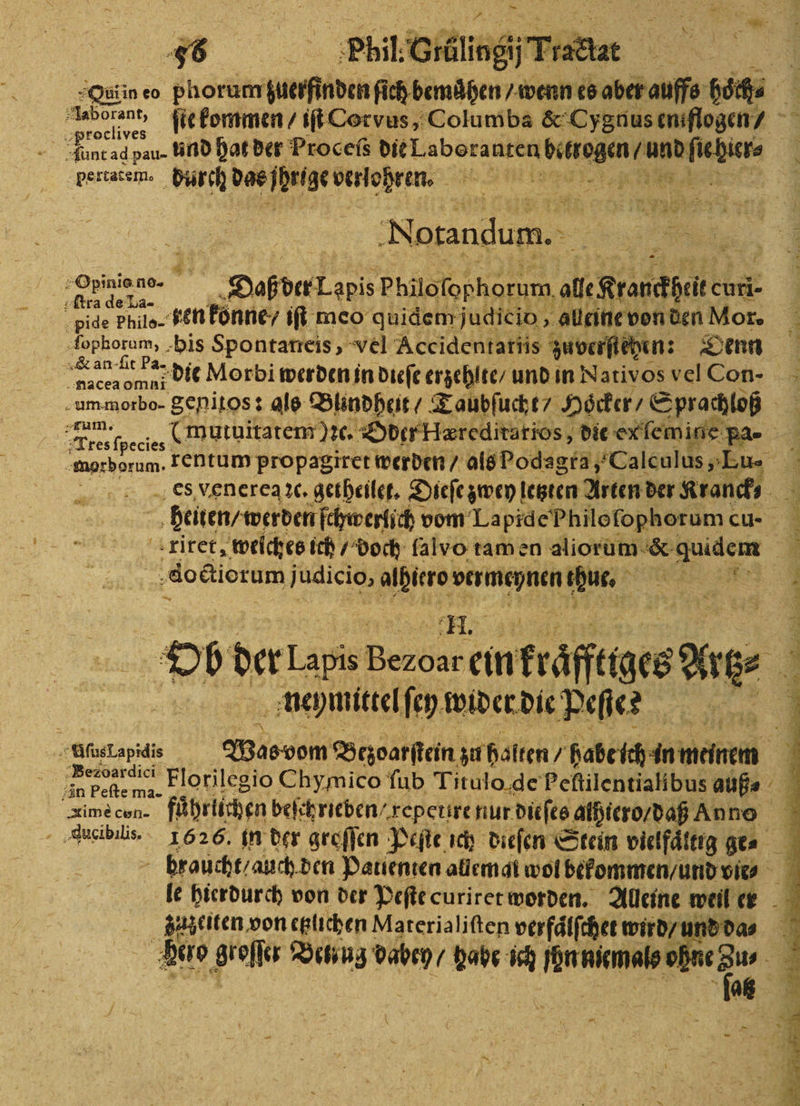 56 Phil. Grülingij Tractat
Qui in eo
laborant,
proclives
sunt ad pau-
pertatem.
phorum zuerfinden sich bemühen / wenn es aber auffs höch-
sie kommen / ist Corvus, Columba & Cygnus entflogen /
und hat der Process die Laboranten betrogen / und sie hier-
durch das jhrige verlohren.
Notandum.
Opinio no-
stra de La-
pide Philo-
sophorum,
& an sit Pa-
nacea omni
um morbo-
rum.
Tres species
morborum.
Daß der Lapis Philosophorum alle Kranckheit curi-
ren könne / ist meo quidem judicio, alleine von den Mor-
bis Spontaneis, vel Accidentariis zuverstehen: Denn
die Morbi werden in diese erzehlte / und in Nativos vel Con-
genitos: als Blindheit / Taubsucht / Höcker / Sprachloß
(mutuitatem) ꝛc. Oder Hæreditarios, die ex semine pa-
rentum propagiret werden / als Podagra, Calculus, Lu-
es venerea ꝛc. getheilet. Diese zwey letzten Arten der Kranck-
heiten / werden schwerlich vom Lapide Philosophorum cu-
riret, welches ich / doch salvo tamen aliorum & quidem
doctiorum judicio, alhiero vermeynen thue.
II.
Ob der Lapis Bezoar ein kräfftiges Artz-
neymittel sey wider die Peste?
Usus Lapidis
Bezoardici
in Peste ma-
xime con-
ducibilis.
Was vom Bezoarstein zu halten / habe ich in meinem
Florilegio Chymico sub Titulo de Pestilentialibus auß-
führlichen beschrieben / repetire nur dieses alhiero / daß Anno
1626. in der grossen Peste ich diesen Stein vielfältig ge-
braucht / auch den Patienten allemal wol bekommen / und vie-
le hierdurch von der Peste curiret worden. Alleine weil er
zuzeiten von etzlichen Materialisten verfälschet wird / und da-
hero grosser Betrug dabey / habe ich jhn niemals ohne Zu-
satz